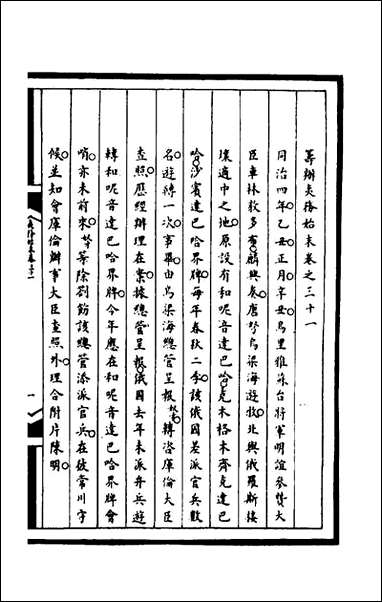 籌辦夷務始末卷之三十一
同治四年乙丑正月辛丑烏里雅蘇台將軍明誼參贊大
臣車林敦多布麟興奏唐努烏梁海游牧北與俄羅斯接
壤適中之地原設有和呢音達巴哈克木格木齊克達巴
哈沙賓達巴哈界牌每年春秋二季該俄國差派官兵數
名遊轉一次事畢由烏梁海總管呈報奴才等轉咨庫倫大臣
查照應經辦理在案據總管呈報俄國去年未派弁兵遊
轉和呢音達巴哈界牌今年應在和呢音達巴哈界牌會
哨亦未前來奴才等除劄飭該總管添派官兵在彼常川守
候並知會庫倫辦事大臣查照外理合附片陳明
一